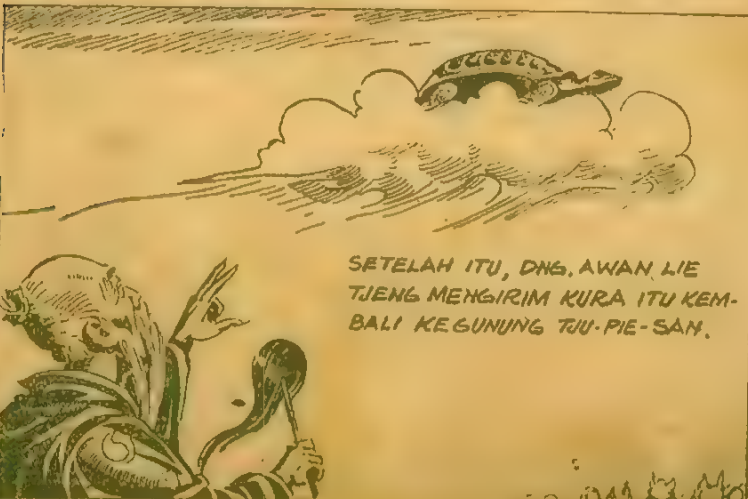 SETELAH ITU, DNG. AWAN LIE
TJENG MENGIRIM KURA ITU KEM-
BALI KEGUNUNG TJU-PIE-SAN.